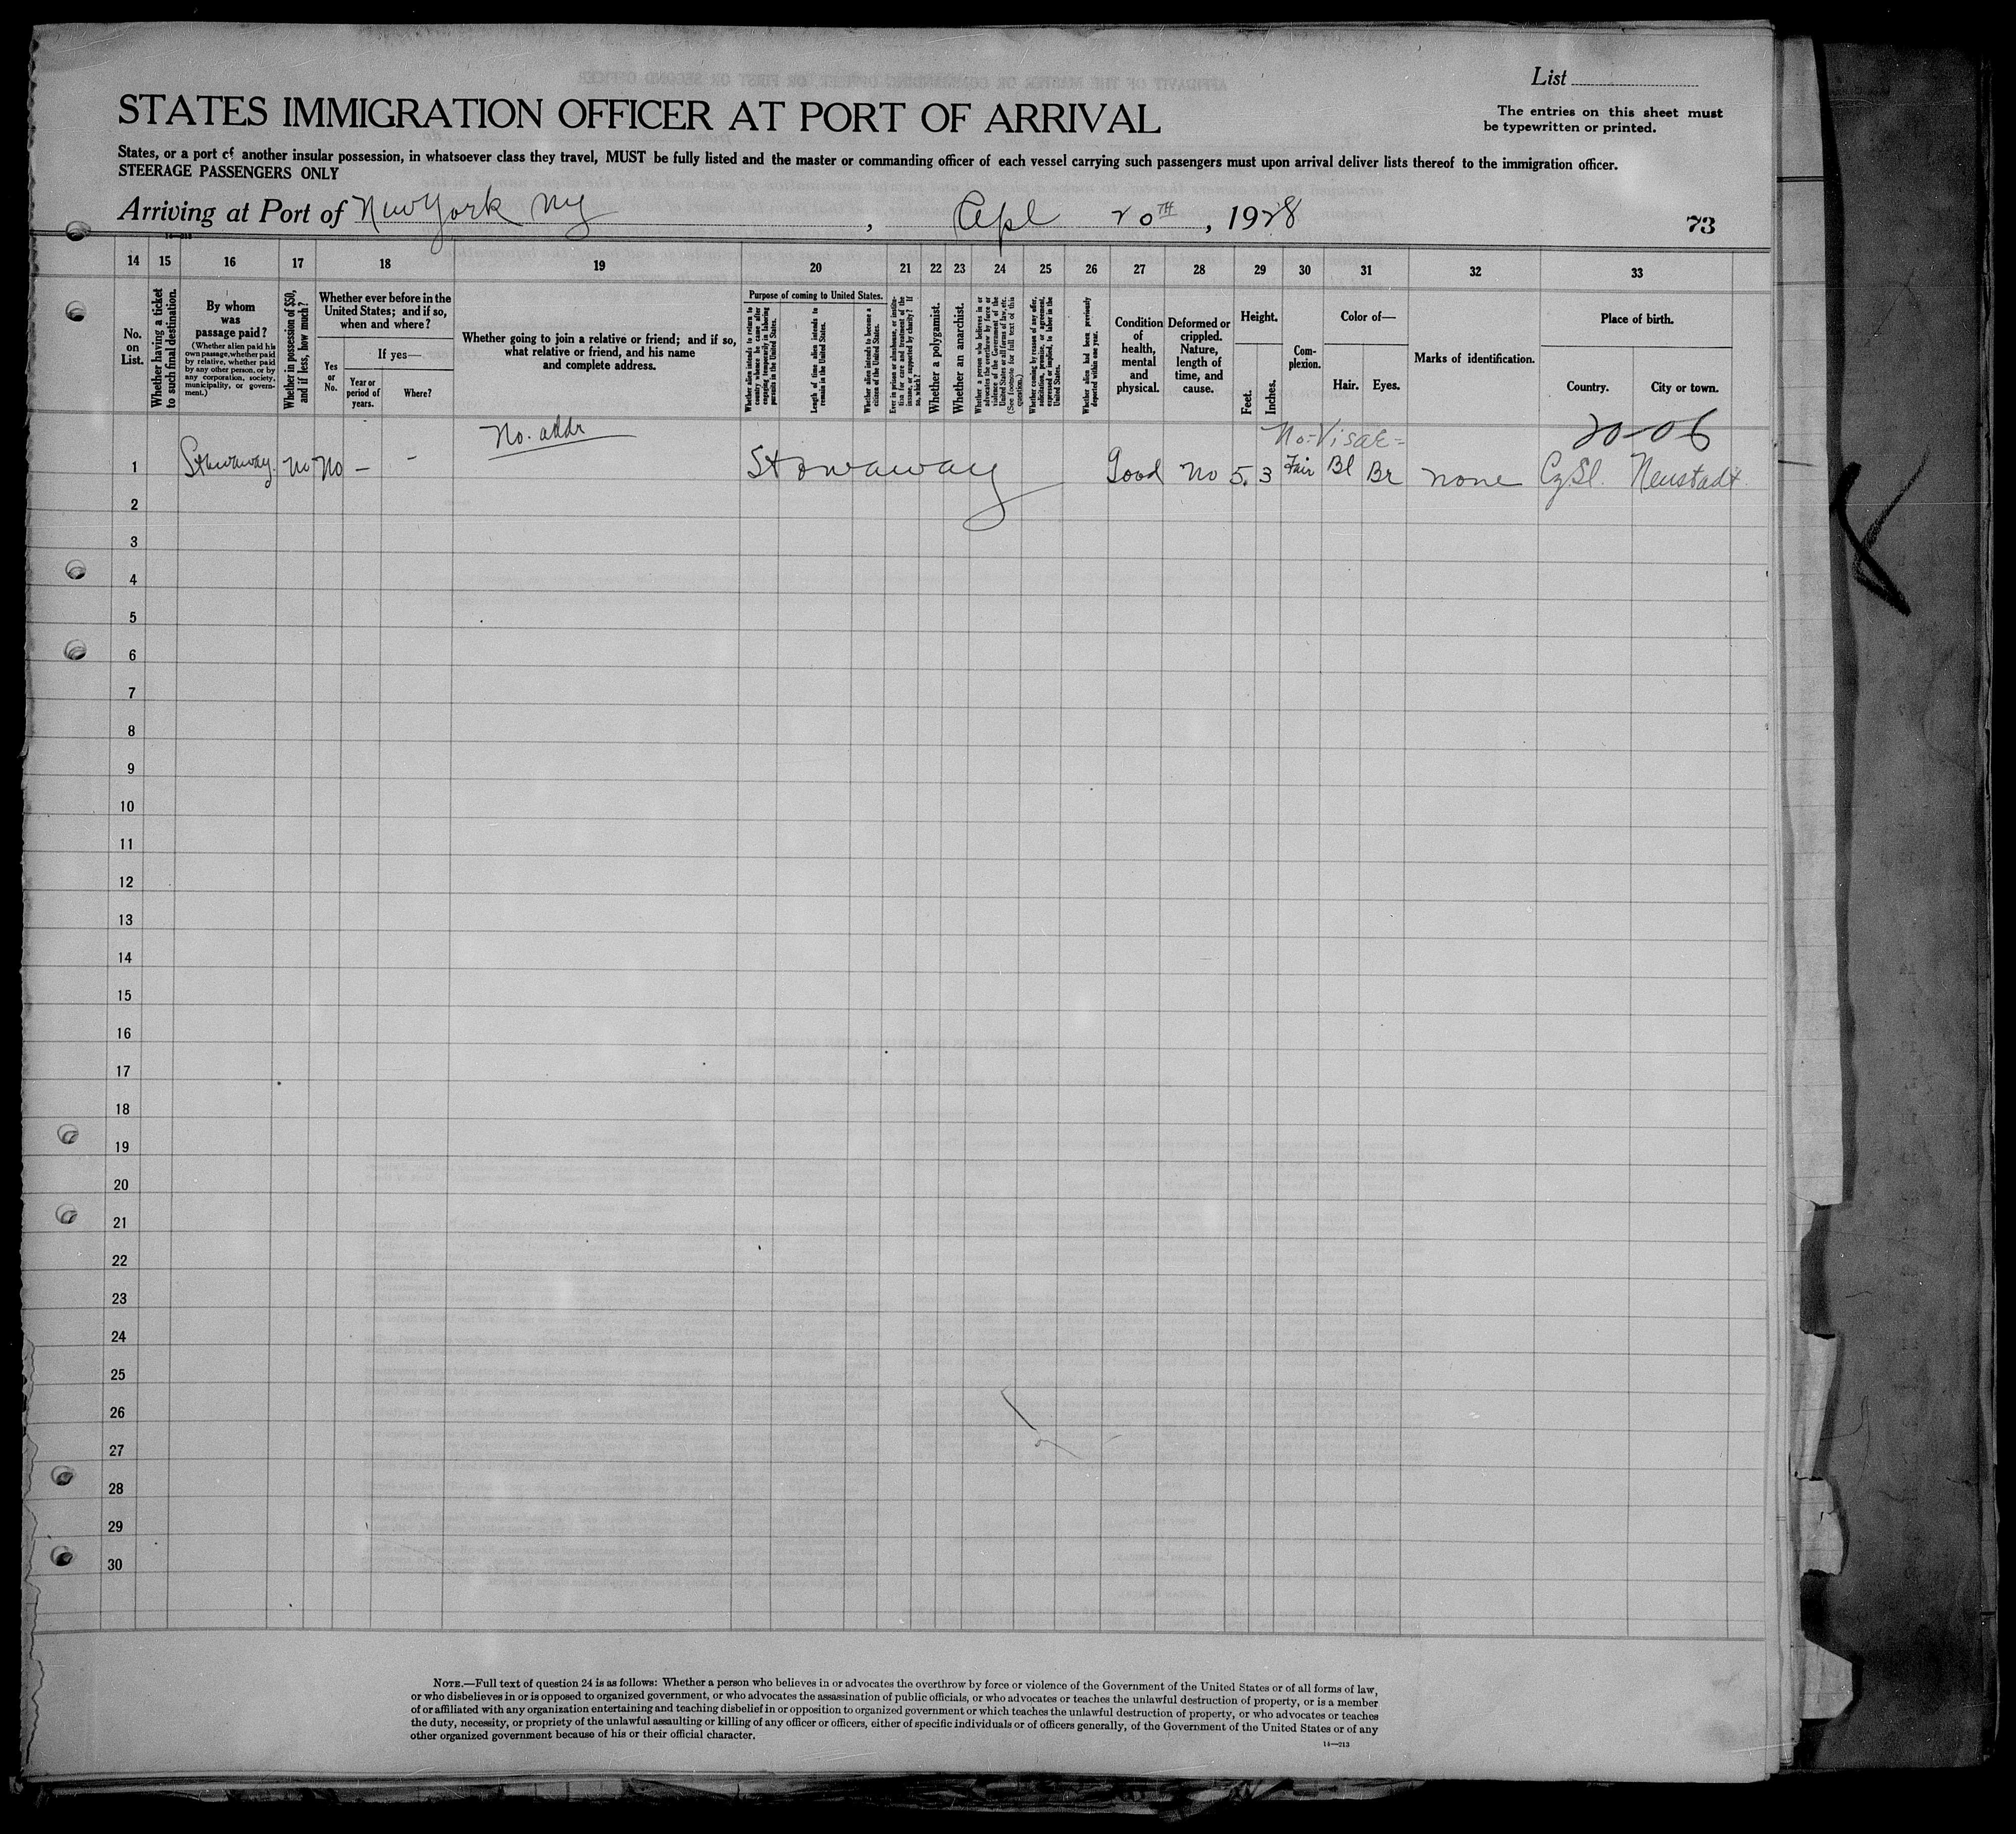 List
STATES IMMIGRATION OFFICER AT PORT OF ARRIVAL
The entries on this sheet must
be typewritten or printed.
States, or a port of another insular possession, in whatsoever class they travel, MUST be fully listed and the master or commanding officer of each vessel carrying such passengers must upon arrival deliver lists thereof to the immigration officer.
STEERAGE PASSENGERS ONLY
Arriving at Port of New York NY, Apl 20TH, 1928
73
14 15 16 17 18 19 20 21 22 23 24 25 26 27 28 29 30 31 32 33
No. on List.
Whether having a ticket to such final destination.
By whom was passage paid?
(Whether alien paid his own passage, whether paid by relative, whether paid by any other person, or by any corporation, society, municipality, or government.)
Whether in possession of $50, and if less, how much?
Whether ever before in the United States; and if so, when and where?
Yes or No.
If yes—
Year or period of years.
Where?
Whether going to join a relative or friend; and if so, what relative or friend, and his name and complete address.
Purpose of coming to United States.
Whether alien intends to return to country whence he came after engaging temporarily in laboring pursuits in the United States.
Length of time alien intends to remain in the United States.
Whether alien intends to become a citizen of the United States.
Ever in prison or almshouse, or institution for care and treatment of the insane, or supported by charity? If so, which?
Whether a polygamist.
Whether an anarchist.
Whether a person who believes in or advocates the overthrow by force or violence of the Government of the United States or all forms of law, etc. (See footnote for full text of this question.)
Whether coming by reason of any offer, solicitation, promise, or agreement, expressed or implied, to labor in the United States.
Whether alien had been previously deported within one year.
Condition of health, mental and physical.
Deformed or crippled. Nature, length of time, and cause.
Height.
Feet.
Inches.
Complexion.
Color of—
Hair.
Eyes.
Marks of identification.
Place of birth.
Country.
City or town.
No. addr
No=Visae=
20-06
1 Stowaway No No – – Stowaway Good No 5. 3 Fair Bl Br none CzSl. Neustadt
2
3
4
5
6
7
8
9
10
11
12
13
14
15
16
17
18
19
20
21
22
23
24
25
26
27
28
29
30
NOTE.—Full text of question 24 is as follows: Whether a person who believes in or advocates the overthrow by force or violence of the Government of the United States or of all forms of law,
or who disbelieves in or is opposed to organized government, or who advocates the assassination of public officials, or who advocates or teaches the unlawful destruction of property, or is a member
of or affiliated with any organization entertaining and teaching disbelief in or opposition to organized government or which teaches the unlawful destruction of property, or who advocates or teaches
the duty, necessity, or propriety of the unlawful assaulting or killing of any officer or officers, either of specific individuals or of officers generally, of the Government of the United States or of any
other organized government because of his or their official character.
14—213